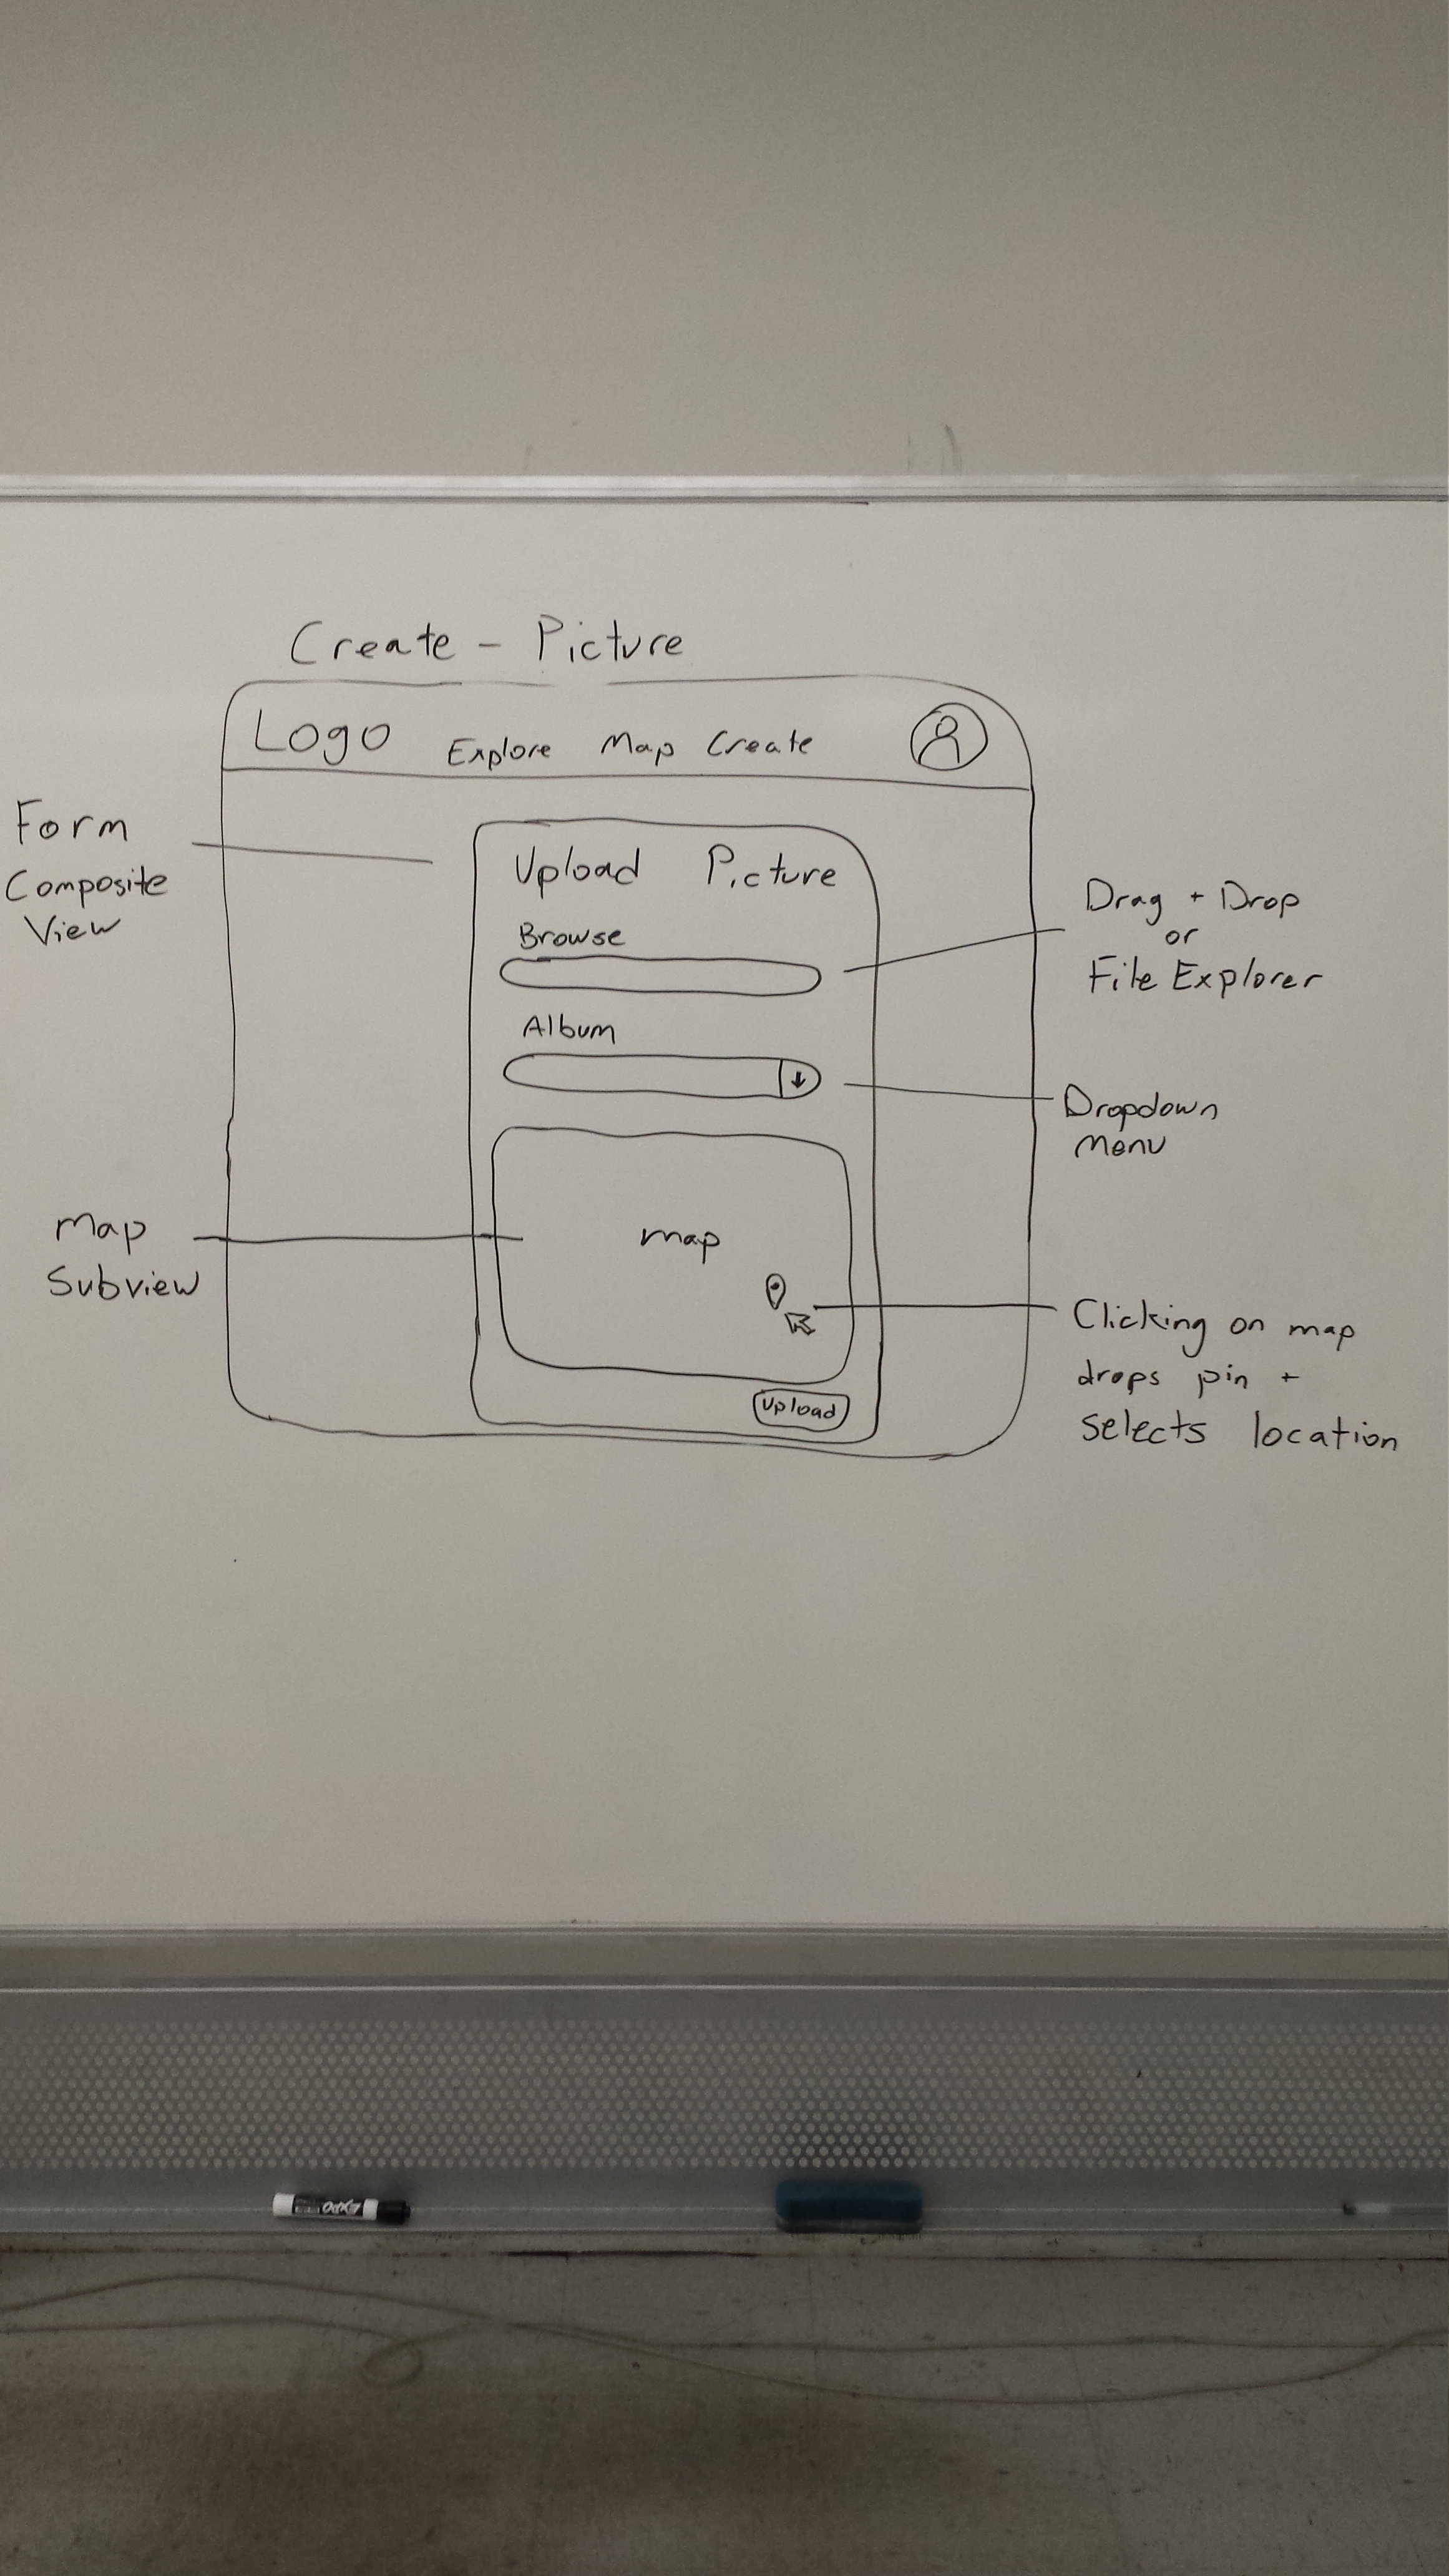 Create - Picture
Logo Explore Map Create
Form
Composite
View
Upload Picture
Browse
Drag + Drop
or
File Explorer
Album
Dropdown
Menu
Map
Subview
map
Clicking on map
drops pin +
selects location
Upload
EXPO